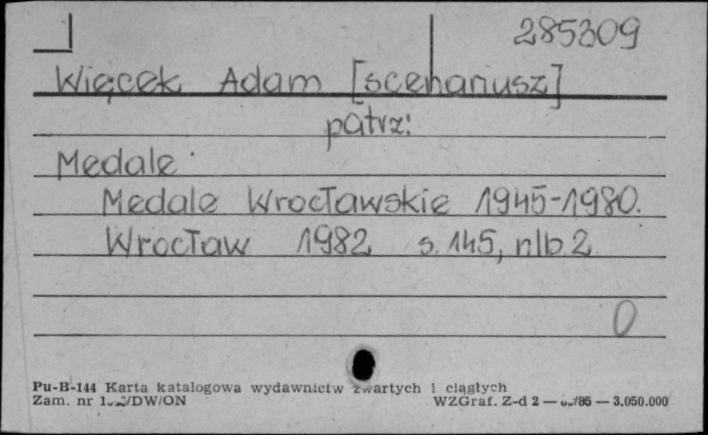 285309
Więcek Adam [scenariusz]
patrz:
Medale
Medale Wrocławskie 1945-1980.
Wrocław 1982 s. 145, nlb 2
0
Pu-B-144 Karta katalogowa wydawnictw zwartych i ciągłych
Zam. nr /DW/ON WZGraf. Z-d 2 — /85 — 3.050.000